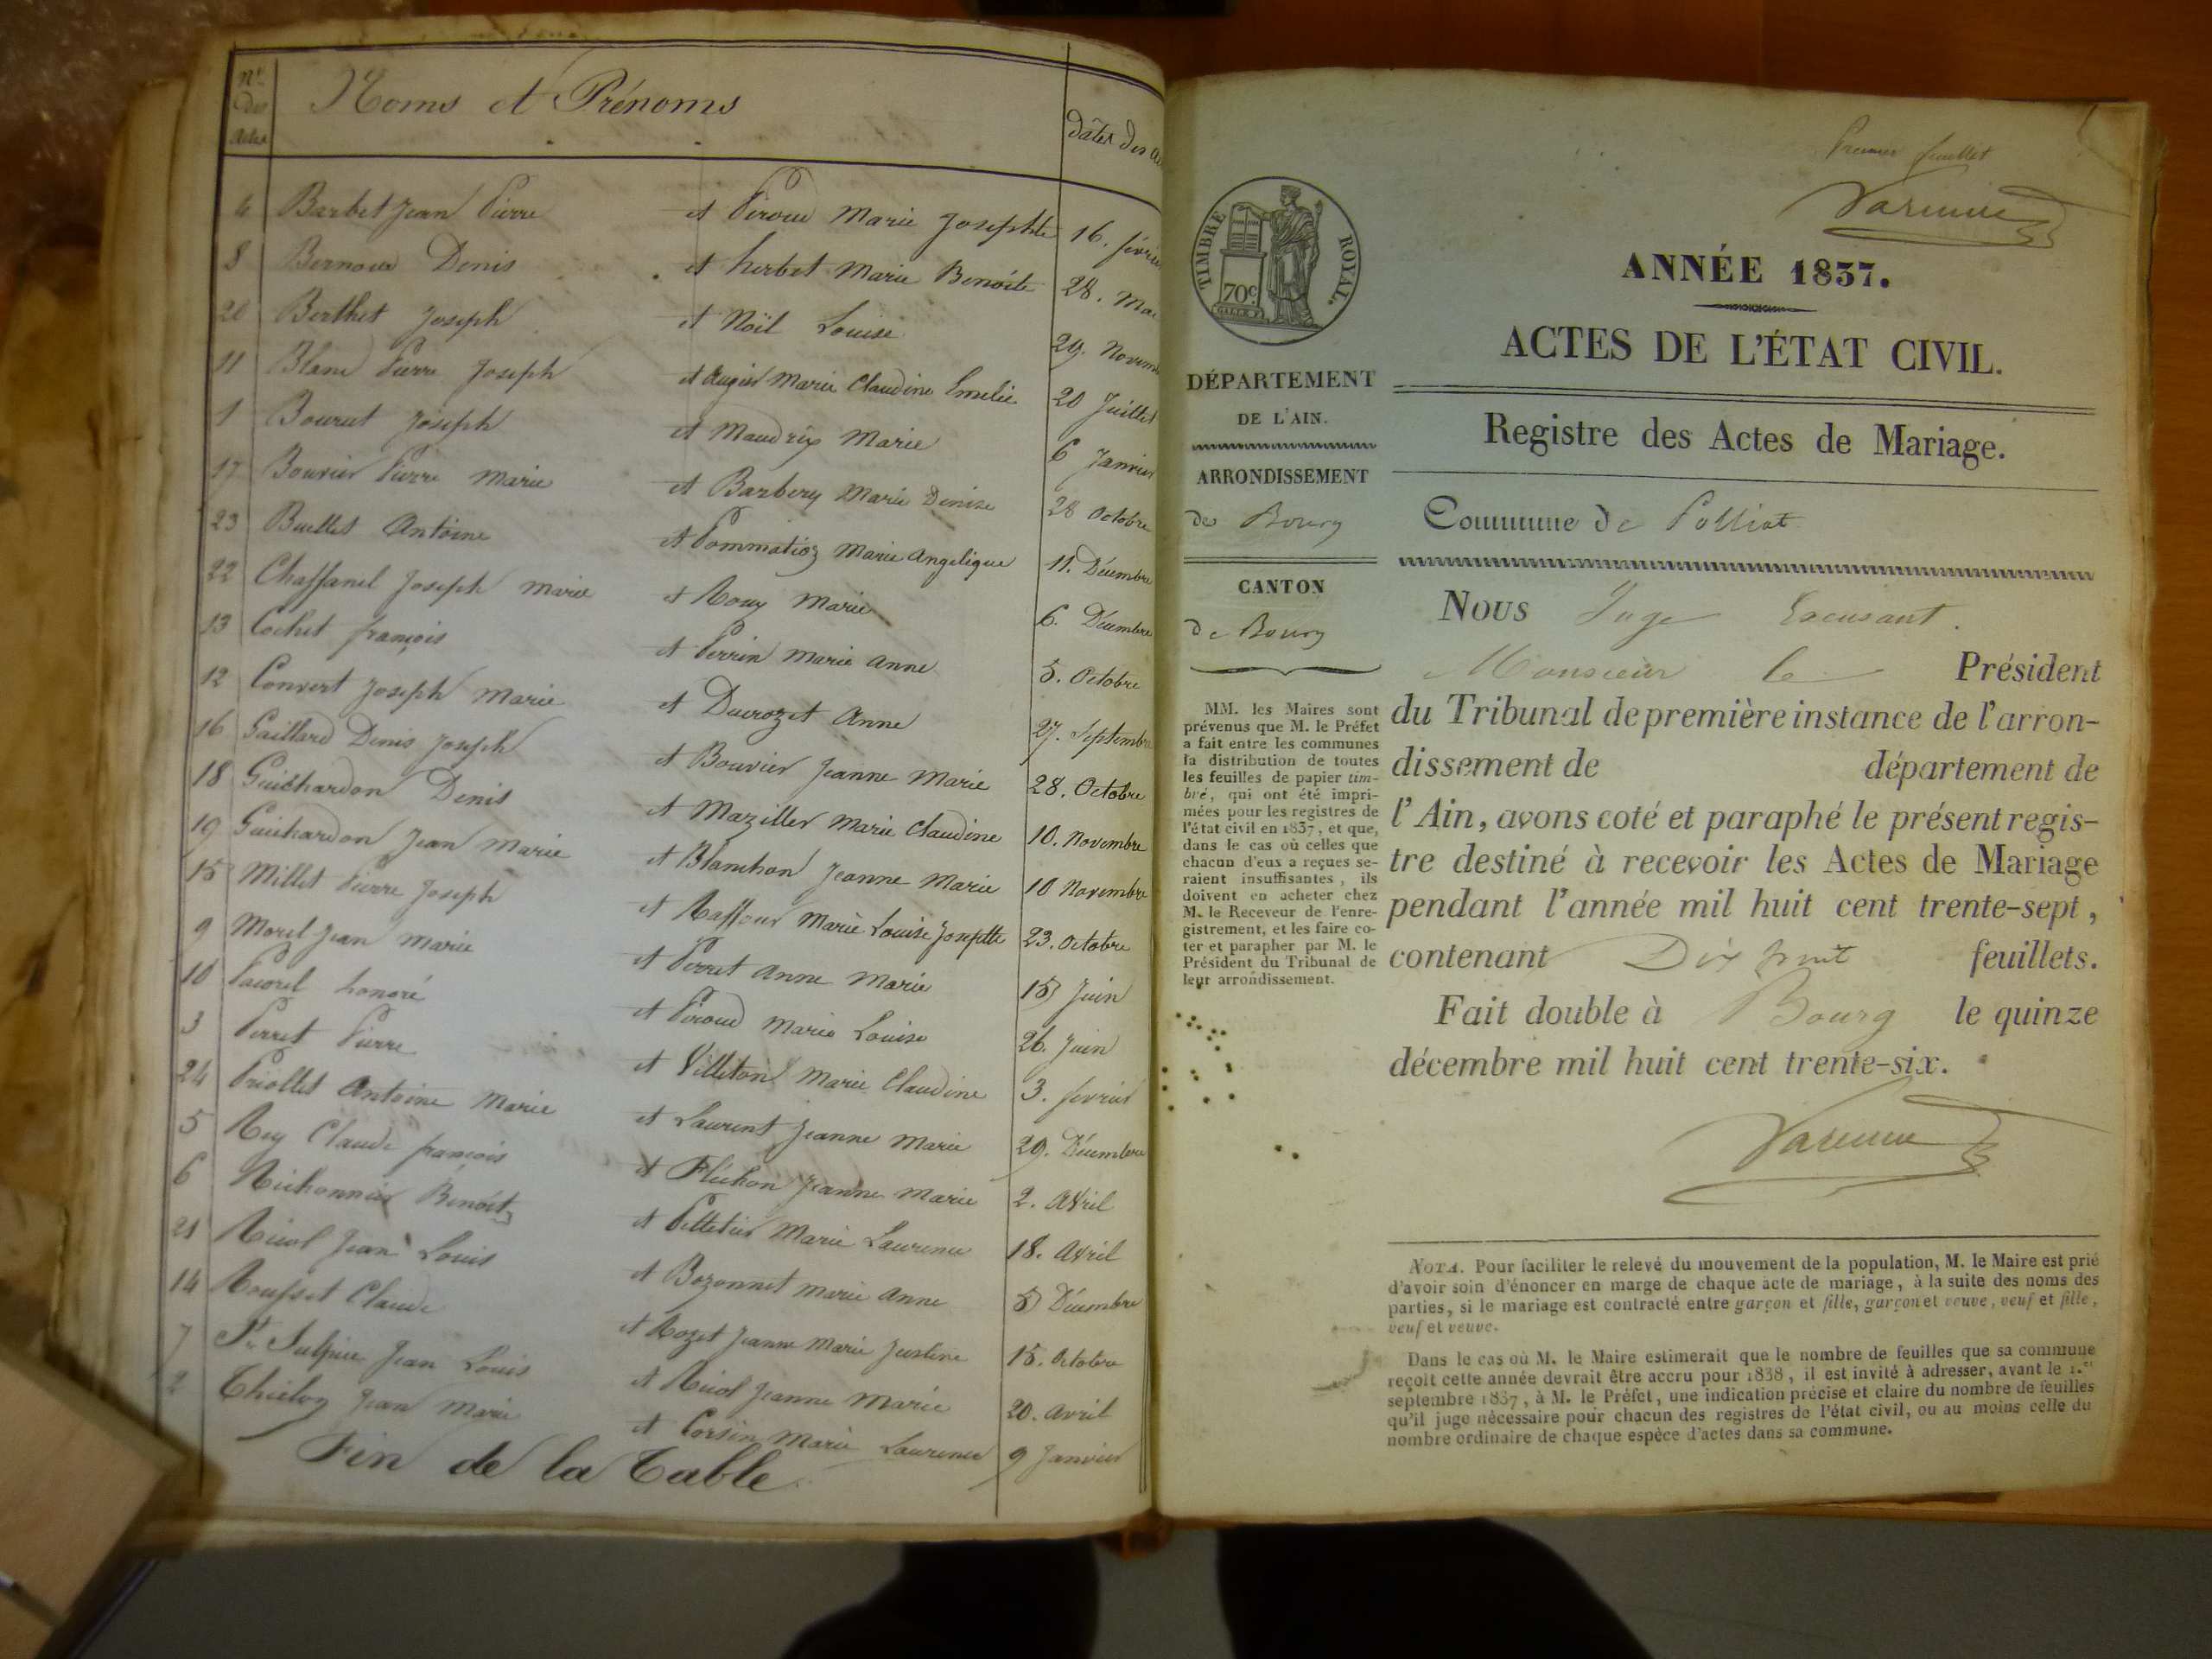 Nos des Actes
Noms et Prénoms
Dates des
4 Barbet Jean Pierre et Piroud Marie Josephte 16. février
8 Bernoud Denis et herbet Marie Benoîte 28. Mai
20 Berthet Joseph et Noël Louise 29. Novem
11 Blanc Pierre Joseph et Augier Marie Claudine Emelie 20 Juillet
1 Bourut Joseph et Maudrix Marie 6 Janvier
17 Bouvier Pierre Marie et Barbery Marie Denise 28 octobre
23 Buellet Antoine et Pommatioz Marie Angelique 11. Décembre
22 Chassanel Joseph Marie et Rouy Marie 6. Décembre
13 Cochet françois et Perrin Marie Anne 5. Octobre
12 Convert Joseph Marie et Ducrozet Anne 27. Septembre
16 Gaillard Denis Joseph et Bouvier Jeanne Marie 28. Octobre
18 Guichardon Denis et Maziller Marie Claudine 10. Novembre
19 Guichardon Jean Marie et Blanchon Jeanne Marie 10 Novembre
15 Millet Pierre Joseph et Raffour Marie Louise Josephte 23. octobre
9 Morel Jean Marie et Perret Anne Marie 15 Juin
10 Pacorel honoré et Piroud Marie Louise 26. Juin
3 Perret Pierre et Villeton Marie Claudine 3. fevrier
24 Priollet Antoine Marie et Laurent Jeanne Marie 29. Décembre
5 Rey Claude françois et Fléchon Jeanne Marie 2. Avril
6 Richonnier Benoît et Pelletier Marie Laurence 18. Avril
21 Ricol Jean Louis et Bozonnet Marie Anne 5 Décembre
14 Rousset Claude et Rozet Jeanne Marie Justine 15. octobre
7 St Sulpice Jean Louis et Ricol Jeanne Marie 20. Avril
2 Thieloz Jean Marie et Corsin Marie Laurence 9 Janvier
Fin de la Table
Premier feuillet
Varenne
TIMBRE ROYAL.
70c
ANNÉE 1837.
ACTES DE L'ÉTAT CIVIL.
DÉPARTEMENT
DE L'AIN.
ARRONDISSEMENT
de Bourg
CANTON
de Bourg
MM. les Maires sont
prévenus que M. le Préfet
a fait entre les communes
la distribution de toutes
les feuilles de papier tim-
bré, qui ont été impri-
mées pour les registres de
l'état civil en 1837, et que,
dans le cas où celles que
chacun d'eux a reçues se-
raient insuffisantes, ils
doivent en acheter chez
M. le Receveur de l'enre-
gistrement, et les faire co-
ter et parapher par M. le
Président du Tribunal de
leur arrondissement.
Registre des Actes de Mariage.
Commune de Polliat
Nous Juge Excusant.
Monsieur le Président
du Tribunal de première instance de l'arron-
dissement de département de
l'Ain, avons coté et paraphé le présent regis-
tre destiné à recevoir les Actes de Mariage
pendant l'année mil huit cent trente-sept,
contenant Dix huit feuillets.
Fait double à Bourg le quinze
décembre mil huit cent trente-six.
Varenne
NOTA. Pour faciliter le relevé du mouvement de la population, M. le Maire est prié
d'avoir soin d'énoncer en marge de chaque acte de mariage, à la suite des noms des
parties, si le mariage est contracté entre garçon et fille, garçon et veuve, veuf et fille,
veuf et veuve.
Dans le cas où M. le Maire estimerait que le nombre de feuilles que sa commune
reçoit cette année devrait être accru pour 1838, il est invité à adresser, avant le 1.er
septembre 1837, à M. le Préfet, une indication précise et claire du nombre de feuilles
qu'il juge nécessaire pour chacun des registres de l'état civil, ou au moins celle du
nombre ordinaire de chaque espèce d'actes dans sa commune.